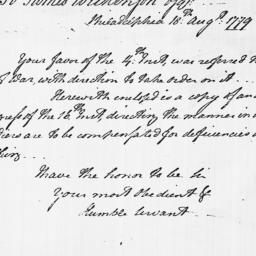 To James Wilkinson Esqr.
Philadelphia 18th. Augt. 1779
Your favor of the 4th. Inst, was referred to
of War, with direction to take order on it
Herewith enclosed is a copy of an
ress of the 16th Inst, directing the manner in w
diers are to be compensated for deficiencies o
thing
I have the honor to be Sir
Your most Obedient &
Humble Servant